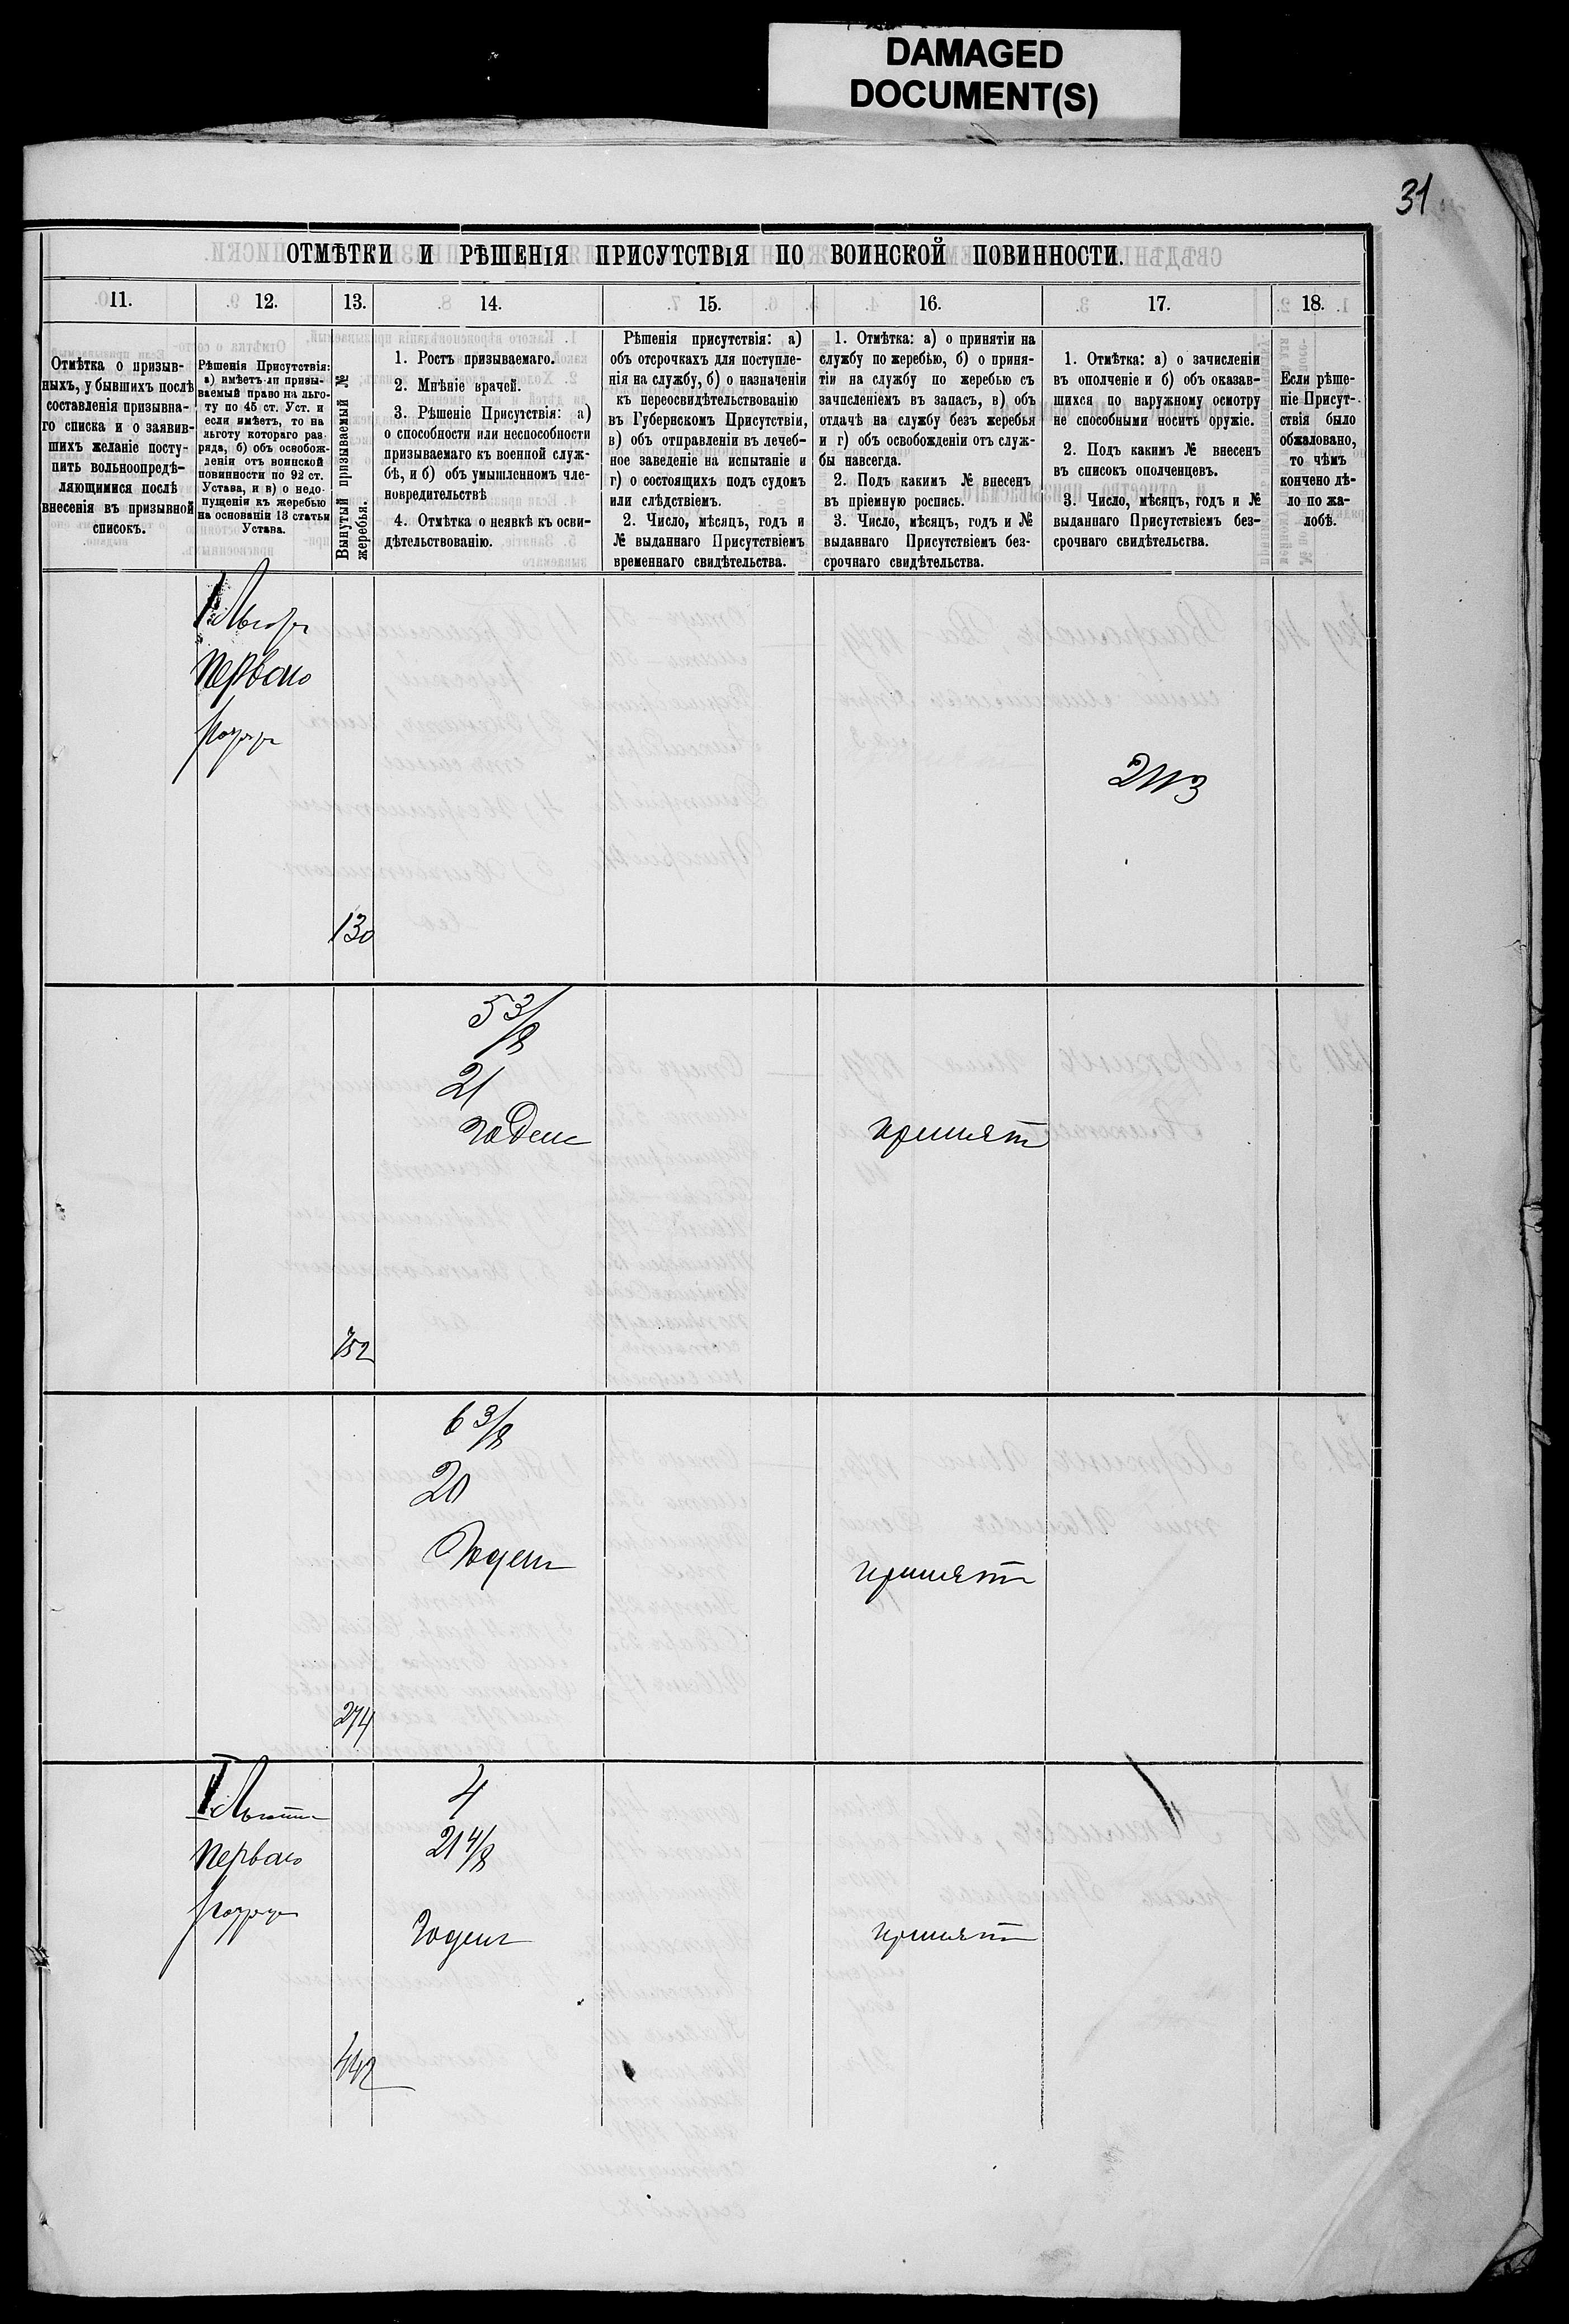 DAMAGED
DOCUMENT(S)
31
ОТМѢТКИ И РѢШЕНІЯ ПРИСУТСТВІЯ ПО ВОИНСКОЙ ПОВИННОСТИ.
11.
12.
13.
14.
15.
16.
17.
18.
Отмѣтка о призыв-
ныхъ, у бывшихъ послѣ
составленія призывна-
го списка и о заявив-
шихъ желаніе посту-
пить вольноопредѣ-
ляющимися послѣ
внесенія въ призывной
списокъ.
Рѣшенія Присутствія:
а) имѣетъ ли призы-
ваемый право на льго-
ту по 45 ст. Уст. и
если имѣетъ, то на
льготу котораго раз-
ряда, б) объ освобож-
деніи отъ воинской
повинности по 92 ст.
Устава, и в) о недо-
пущеніи къ жеребью
на основаніи 13 статьи
Устава.
Вынутый призываемый №
жеребья.
1. Ростъ призываемаго.
2. Мнѣніе врачей.
3. Рѣшеніе Присутствія: а)
о способности или неспособности
призываемаго къ военной служ-
бѣ, и б) объ умышленномъ чле-
новредительствѣ
4. Отмѣтка о неявкѣ къ осви-
дѣтельствованію.
Рѣшенія присутствія: а)
объ отсрочкахъ для поступле-
нія на службу, б) о назначеніи
къ переосвидѣтельствованію
въ Губернскомъ Присутствіи,
в) объ отправленіи въ лечеб-
ное заведеніе на испытаніе и
г) о состоящихъ подъ судомъ
или слѣдствіемъ.
2. Число, мѣсяцъ, годъ и
№ выданнаго Присутствіемъ
временнаго свидѣтельства.
1. Отмѣтка: а) о принятіи на
службу по жеребью, б) о приня-
тіи на службу по жеребью съ
зачисленіемъ въ запасъ, в) объ
отдачѣ на службу безъ жеребья
и г) объ освобожденіи отъ служ-
бы навсегда.
2. Подъ какимъ № внесенъ
въ пріемную роспись.
3. Число, мѣсяцъ, годъ и №
выданнаго Присутствіемъ без-
срочнаго свидѣтельства.
1. Отмѣтка: а) о зачисленіи
въ ополченіе и б) объ оказав-
шихся по наружному осмотру
не способными носить оружіе.
2. Подъ какимъ № внесенъ
въ списокъ ополченцевъ.
3. Число, мѣсяцъ, годъ и №
выданнаго Присутствіемъ без-
срочнаго свидѣтельства.
Если рѣше-
ніе Присут-
ствія было
обжаловано,
то чѣмъ
кончено дѣ-
ло по жа-
лобѣ.
I Льгота
перваго
разряда
130
5 3/8
21
годенъ
принятъ
752
6 3/8
20
Годенъ
принятъ
274
I Льгота
перваго
разряда
4
21 4/8
годенъ
принятъ
442